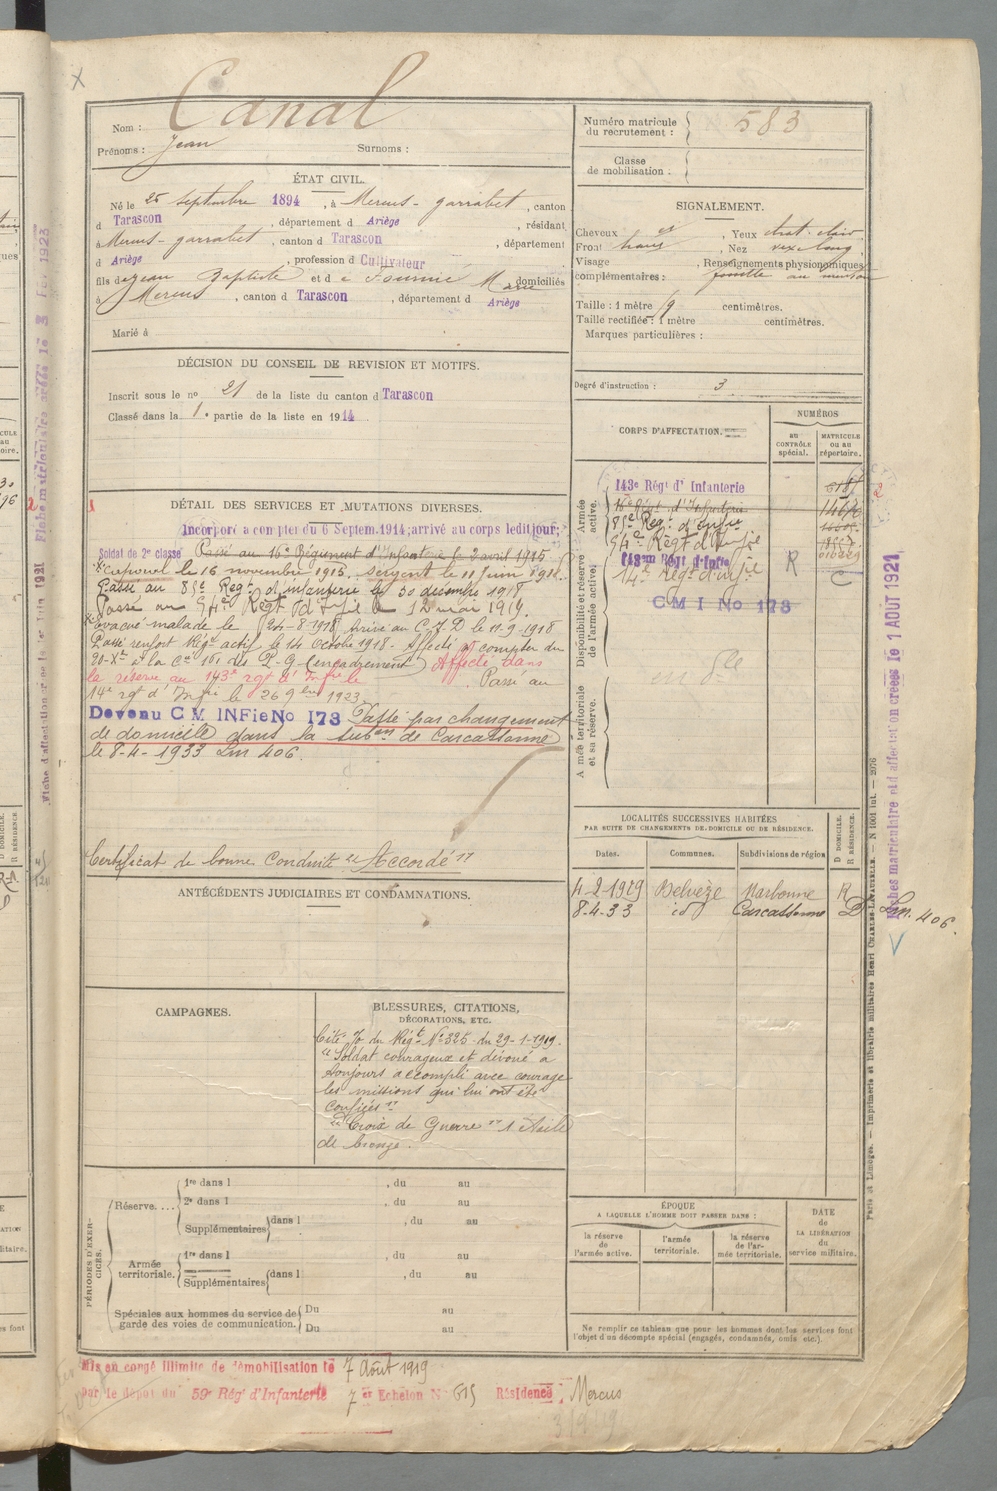 Canal
Nom :
Prénoms : Jean Surnoms :
ÉTAT CIVIL.
Né le 25 septembre 1894, à Mercus-garrabet, canton
d Tarascon, département d Ariège, résidant
à Mercus-garrabet, canton d Tarascon, département
d Ariège, profession d Cultivateur
fils de Jean Baptiste et d e Fournié Marie domiciliés
à Mercus, canton d Tarascon, département d Ariège
Marié à
DÉCISION DU CONSEIL DE REVISION ET MOTIFS.
Inscrit sous le no 21 de la liste du canton d Tarascon
Classé dans la 1e partie de la liste en 1914
DÉTAIL DES SERVICES ET MUTATIONS DIVERSES.
Incorporé a compter du 6 Septem.1914; arrivé au corps ledit jour;
Soldat de 2e classe Passé au 16e Régiment d'Infanterie le 2 avril 1915
Caporal le 16 novembre 1915. sergent le 11 juin 1916.
Passé au 85e Regt d'infanterie le 30 décembre 1918
Passé au 94e Regt d'Infie le 12 mai 1919.
évacué malade le 24-8-1918 Arrivé au C.I.D le 11-9-1918
Passé renfort Régt actif le 14 octobre 1918. Affecté à compter du
20-Xbre à la Cie 161 des P.G (encadrement) Affecté dans
la réserve au 143e rgt d'Infrie Passé au
14e rgt d'Infri le 26 9bre 1923.
Devenu C M INFie No 173 Passé par changement
de domicile dans la subon de Carcassonne
le 8-4-1933 Lm 406.
Certificat de bonne Conduite "Accordé"
ANTÉCÉDENTS JUDICIAIRES ET CONDAMNATIONS.
CAMPAGNES.
BLESSURES, CITATIONS,
DÉCORATIONS, ETC.
Cité O. du Régt No 325 du 29-1-1919.
"Soldat courageux et dévoué a
toujours accompli avec courage
les missions qui lui ont été
confiées"
"Croix de Guerre" 1 étoile
de bronze.
PÉRIODES D'EXERCICES.
Réserve.... 1re dans l , du au
2e dans l , du au
Supplémentaires dans l , du au
Armée territoriale. 1re dans l , du au
Supplémentaires dans l , du au
Spéciales aux hommes du service de Du au
garde des voies de communication. Du au
Mis en congé illimité de démobilisation le 7 Août 1919
par le dépôt du 59e Rég' d'Infanterie 7e Echelon N° 615 Résidence Mercus
Numéro matricule
du recrutement : 583
Classe
de mobilisation :
SIGNALEMENT.
Cheveux, Yeux chat. clair
Front haut, Nez
Visage , Renseignements physionomiques
complémentaires : fossette au menton
Taille : 1 mètre centimètres.
Taille rectifiée : 1 mètre centimètres.
Marques particulières :
Degré d'instruction : 3
CORPS D'AFFECTATION. NUMÉROS
au contrôle spécial. MATRICULE ou au répertoire.
Armée active.
143e Régt d'Infanterie
16e Régt d'Infanterie
85e Reg. d'Infie
94e Régt d'Infie
Disponibilité et réserve de l'armée active.
143em Régt d'Infie
14e Regt d'Infie R C
C M I No 173
Armée territoriale et sa réserve.
LOCALITÉS SUCCESSIVES HABITÉES
PAR SUITE DE CHANGEMENTS DE DOMICILE OU DE RÉSIDENCE.
D DOMICILE. R RÉSIDENCE.
Dates. Communes. Subdivisions de région
4-2-1929 Belveze Narbonne R
8-4-33 id Carcassonne D Lm. 406.
ÉPOQUE
A LAQUELLE L'HOMME DOIT PASSER DANS :
la réserve de l'armée active. l'armée territoriale. la réserve de l'armée territoriale.
DATE de LA LIBÉRATION du service militaire.
Ne remplir ce tableau que pour les hommes dont les services font
l'objet d'un décompte spécial (engagés, condamnés, omis etc.).
Paris et Limoges. — Imprimerie et librairie militaires Henri CHARLES-LAVAUZELLE. — N 1001 int. — 2076
Fiches matriculaire et d'affection créées le 1 AOUT 1921